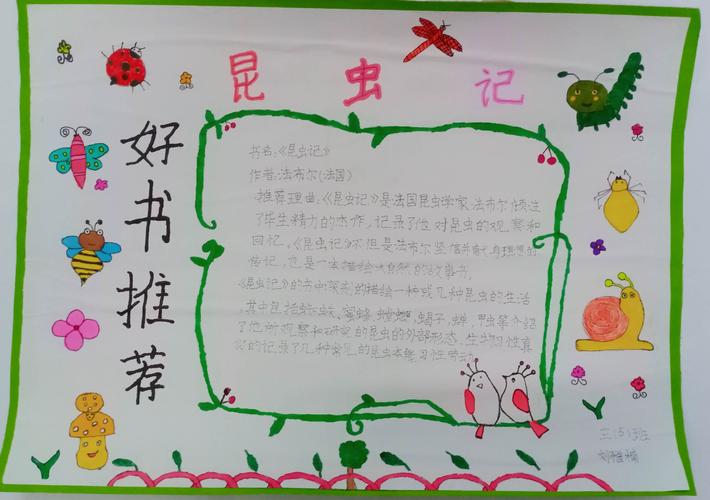 昆虫记
好书推荐
书名:《昆虫记》
作者:法布尔(法国)
推荐理由:《昆虫记》是法国昆虫学家、法布尔倾注
了毕生精力的杰作,记录了他对昆虫的观察和
回忆。《昆虫记》不但是法布尔坚信并献身理想的
传记,也是一本描绘大自然的故事书
《昆虫记》的书中深刻的描绘一种或几种昆虫的生活
其中包括蜘蛛、蜜蜂、螳螂、蝎子、蝉、
等介绍
了他所观察和研究的昆虫的外部形态、生物习性真
实的记录了几种常见的昆虫本能习性劳动
三
班